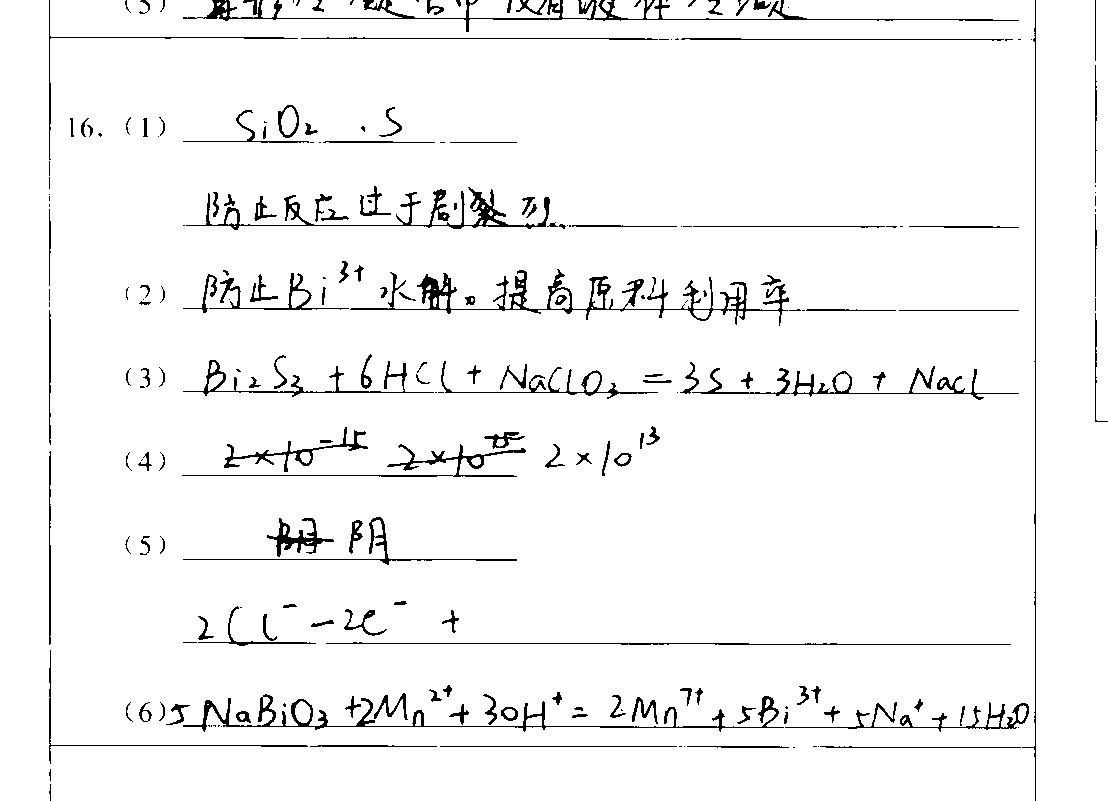 (5)
16. (1) SiO₂ . S
防止反应过于剧烈
(2) 防止Bi³⁺水解。提高原料利用率
(3) Bi₂S₃ + 6HCl + NaClO₃ = 3S + 3H₂O + NaCl
(4) 2×10⁻¹⁵ 2×10¹⁵ 2×10¹³
(5) 阴
2Cl⁻ - 2e⁻ +
(6) 5NaBiO₃ + 2Mn²⁺ + 30H⁺ = 2Mn⁷⁺ + 5Bi³⁺ + 5Na⁺ + 15H₂O